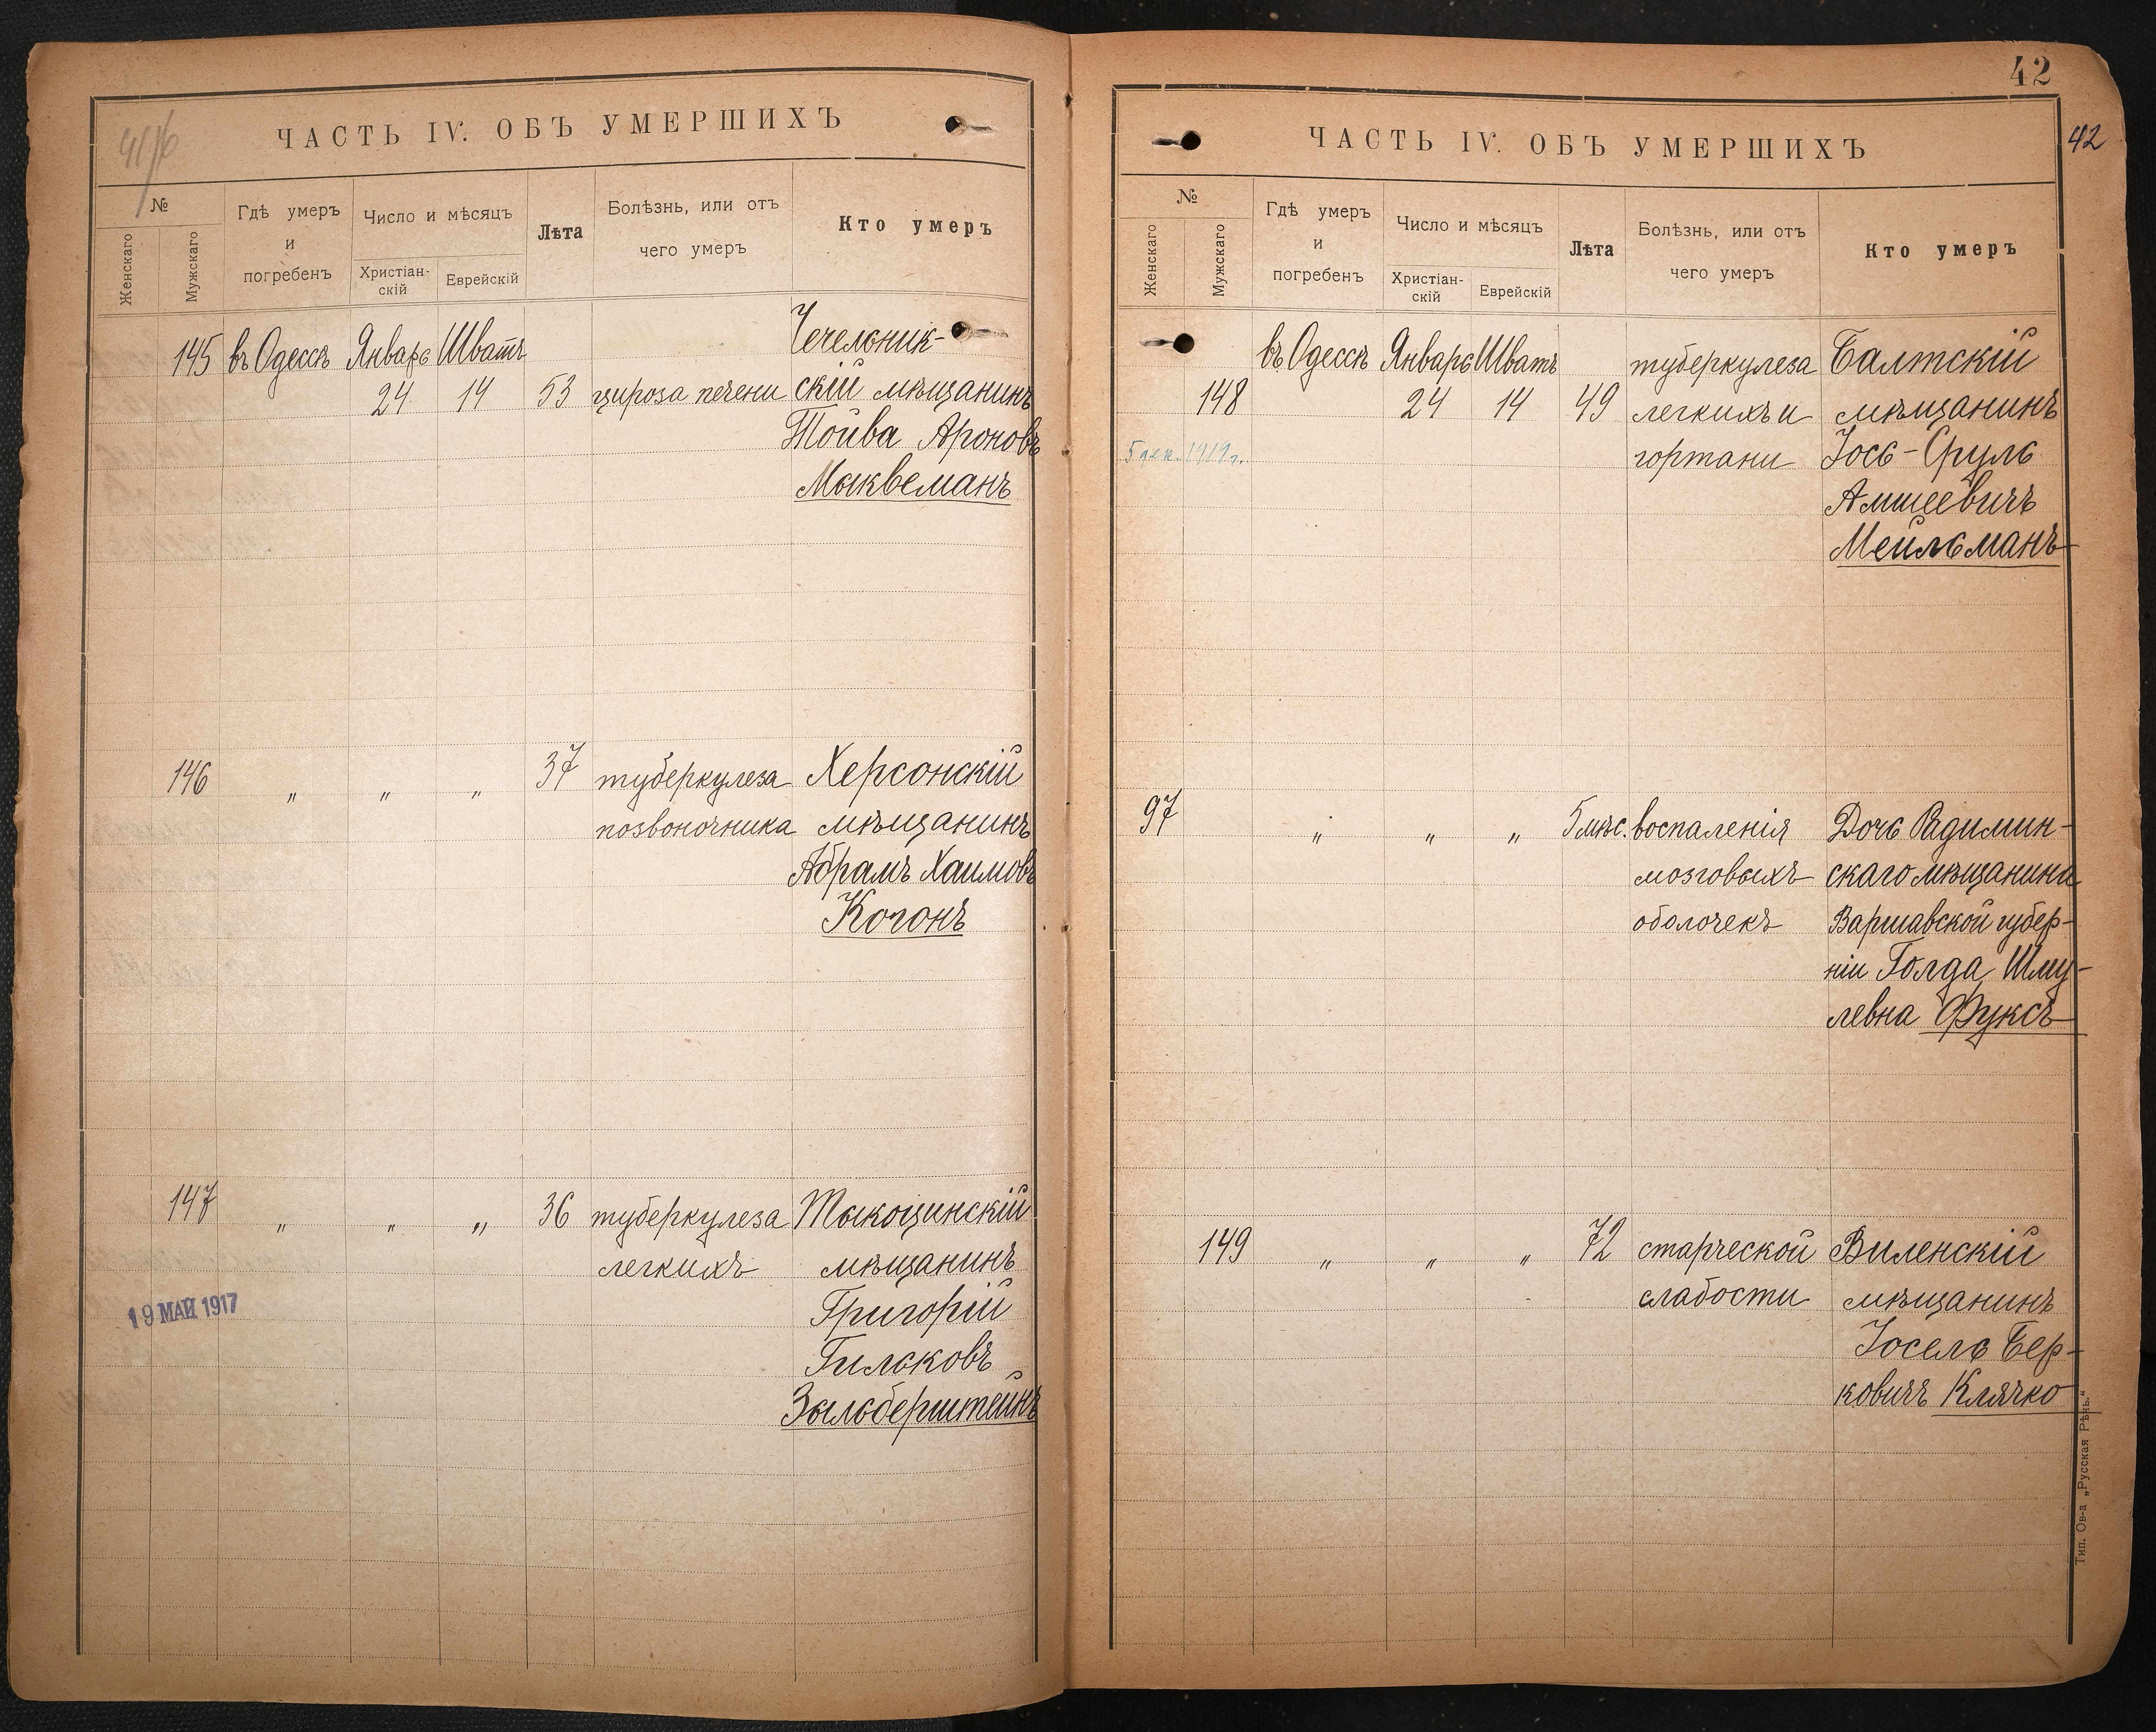 41/б
ЧАСТЬ IV. ОБЪ УМЕРШИХЪ
№
Женскаго
Мужскаго
Гдѣ умеръ
и
погребенъ
Число и мѣсяцъ
Христіан-
скій
Еврейскій
Лѣта
Болѣзнь, или отъ
чего умеръ
Кто умеръ
Чечельник-
145 въ Одессѣ Январь Шватъ
24 14 53 цироза печени скій мѣщанинъ
Тойва Ароновъ
Мыквеманъ
146 „ „ „ 37 туберкулеза Херсонскій
позвоночника мѣщанинъ
Абрамъ Хаимовъ
Когонъ
147 „ „ „ 36 туберкулеза Тыкоцинскій
легкихъ мѣщанинъ
19 МАЙ 1917
Григорій
Гильковъ
Зыльберштейнъ
42
ЧАСТЬ IV. ОБЪ УМЕРШИХЪ
42
№
Женскаго
Мужскаго
Гдѣ умеръ
и
погребенъ
Число и мѣсяцъ
Христіан-
скій
Еврейскій
Лѣта
Болѣзнь, или отъ
чего умеръ
Кто умеръ
въ Одессѣ Январь Шватъ туберкулеза Балтскій
148 24 14 49 легкихъ и мѣщанинъ
5 дек. 1919 г. гортани Іось-Сруль
Амшеевичъ
Мейльманъ
97 „ „ „ 5 мѣс. воспаленія Дочь Радимин-
мозговыхъ скаго мѣщанина
оболочекъ Варшавской губер-
ніи Голда Шму-
левна Фуксъ
149 „ „ „ 72 старческой Виленскій
слабости мѣщанинъ
Іосель Бер-
ковичъ Клячко
Тип. Ов-а „Русская Рѣчь.“